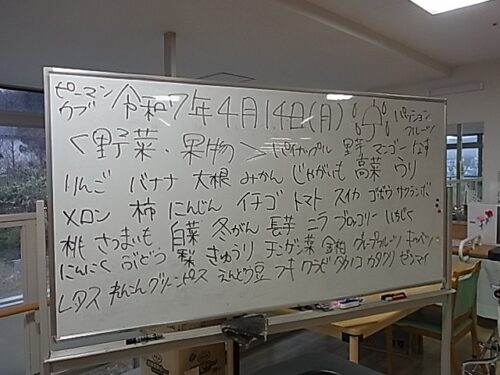 ピーマン 令和7年4月14日(月) パッション
ウブ フルーツ
<野菜、果物> パイナップル 野芋 マンゴー なす
りんご バナナ 大根 みかん じゃがいも 高菜 うり
メロン 柿 にんじん イチゴ トマト スイカ ゴボウ サクランボ
桃 さつまいも 白菜 冬がん 長芋 ニラ ブロッコリー いちじく
にんにく ぶどう 梨 きゅうり チンゲン菜 金柑 グレープフルーツ キャベツ
レタス れんこん グリーンピス えんどう豆 フキ ワラビ タケノコ カタクリ ゼンマイ